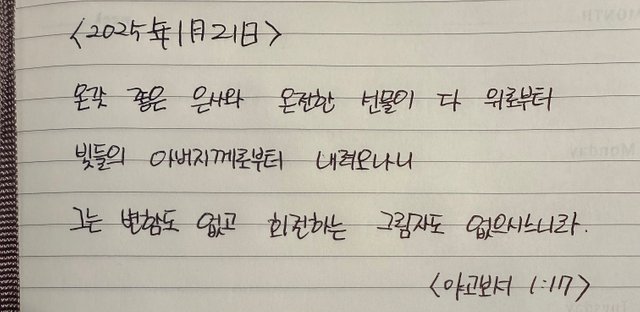 <2025年1月21日>
온갖 좋은 은사와 온전한 선물이 다 위로부터
빛들의 아버지께로부터 내려오나니
그는 변함도 없고 회전하는 그림자도 없으시느니라.
<야고보서 1:17>
MONTH
Monday
Tuesday